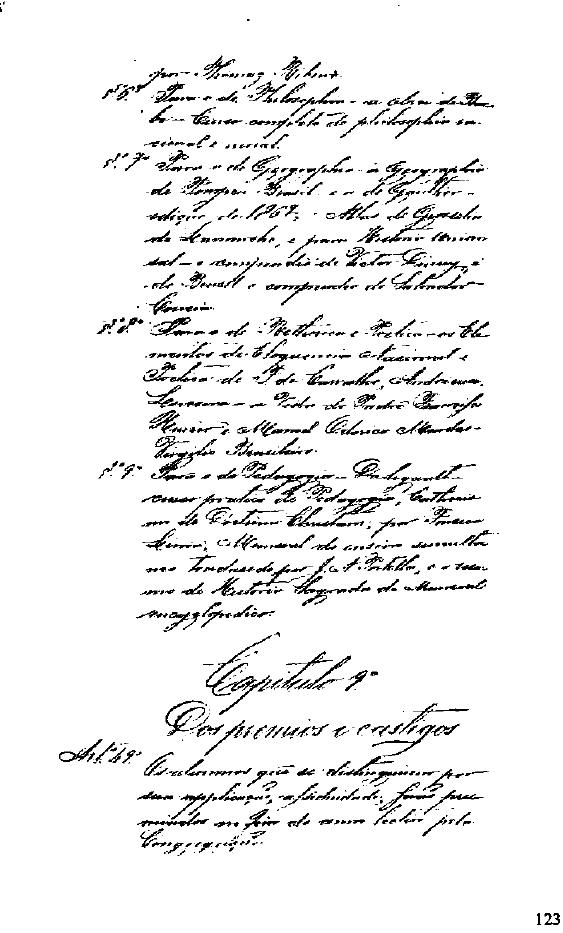 por Thomaz Ribeiro
§º 6º Para o de Philosophia - a obra de Bar
be - Curso completo de philosophia ra-
cional e moral.
§º 7º Para o de Geographia - a Geographia
de Pompeo Brasil e a de Gaultier -
edição de 1867; Atlas de
de Lamarche, e para Historia Univer
sal - o compendio de Victor Duruy, e
do Brasil o compendio de Salvador -
Correia.
§º 8º Para o de Rethorica e Poetica - os Ele
mentos de Eloquencia Nacional e
Poetica de de Carvalho,
a Vida do Padre
e Manoel Odorico Mendes -
Virgilio Brasileiro.
§º 9º Para o de Pedagogia - Daligault -
curso pratico de Pedagogia, Cathecis
mo de Doutrina Christam, por
Manual do ensino simulta
neo traduzido por J. A. Portella, e o resu-
mo de Historia Sagrada do Manual
encyclopedico.
Capitulo 9º
Dos premios e castigos
Art. 49º
Os alumnos que se distinguirem por
sua applicação, assiduidade, serão pre
miados no fim do anno lectivo pela
Congregação.
123